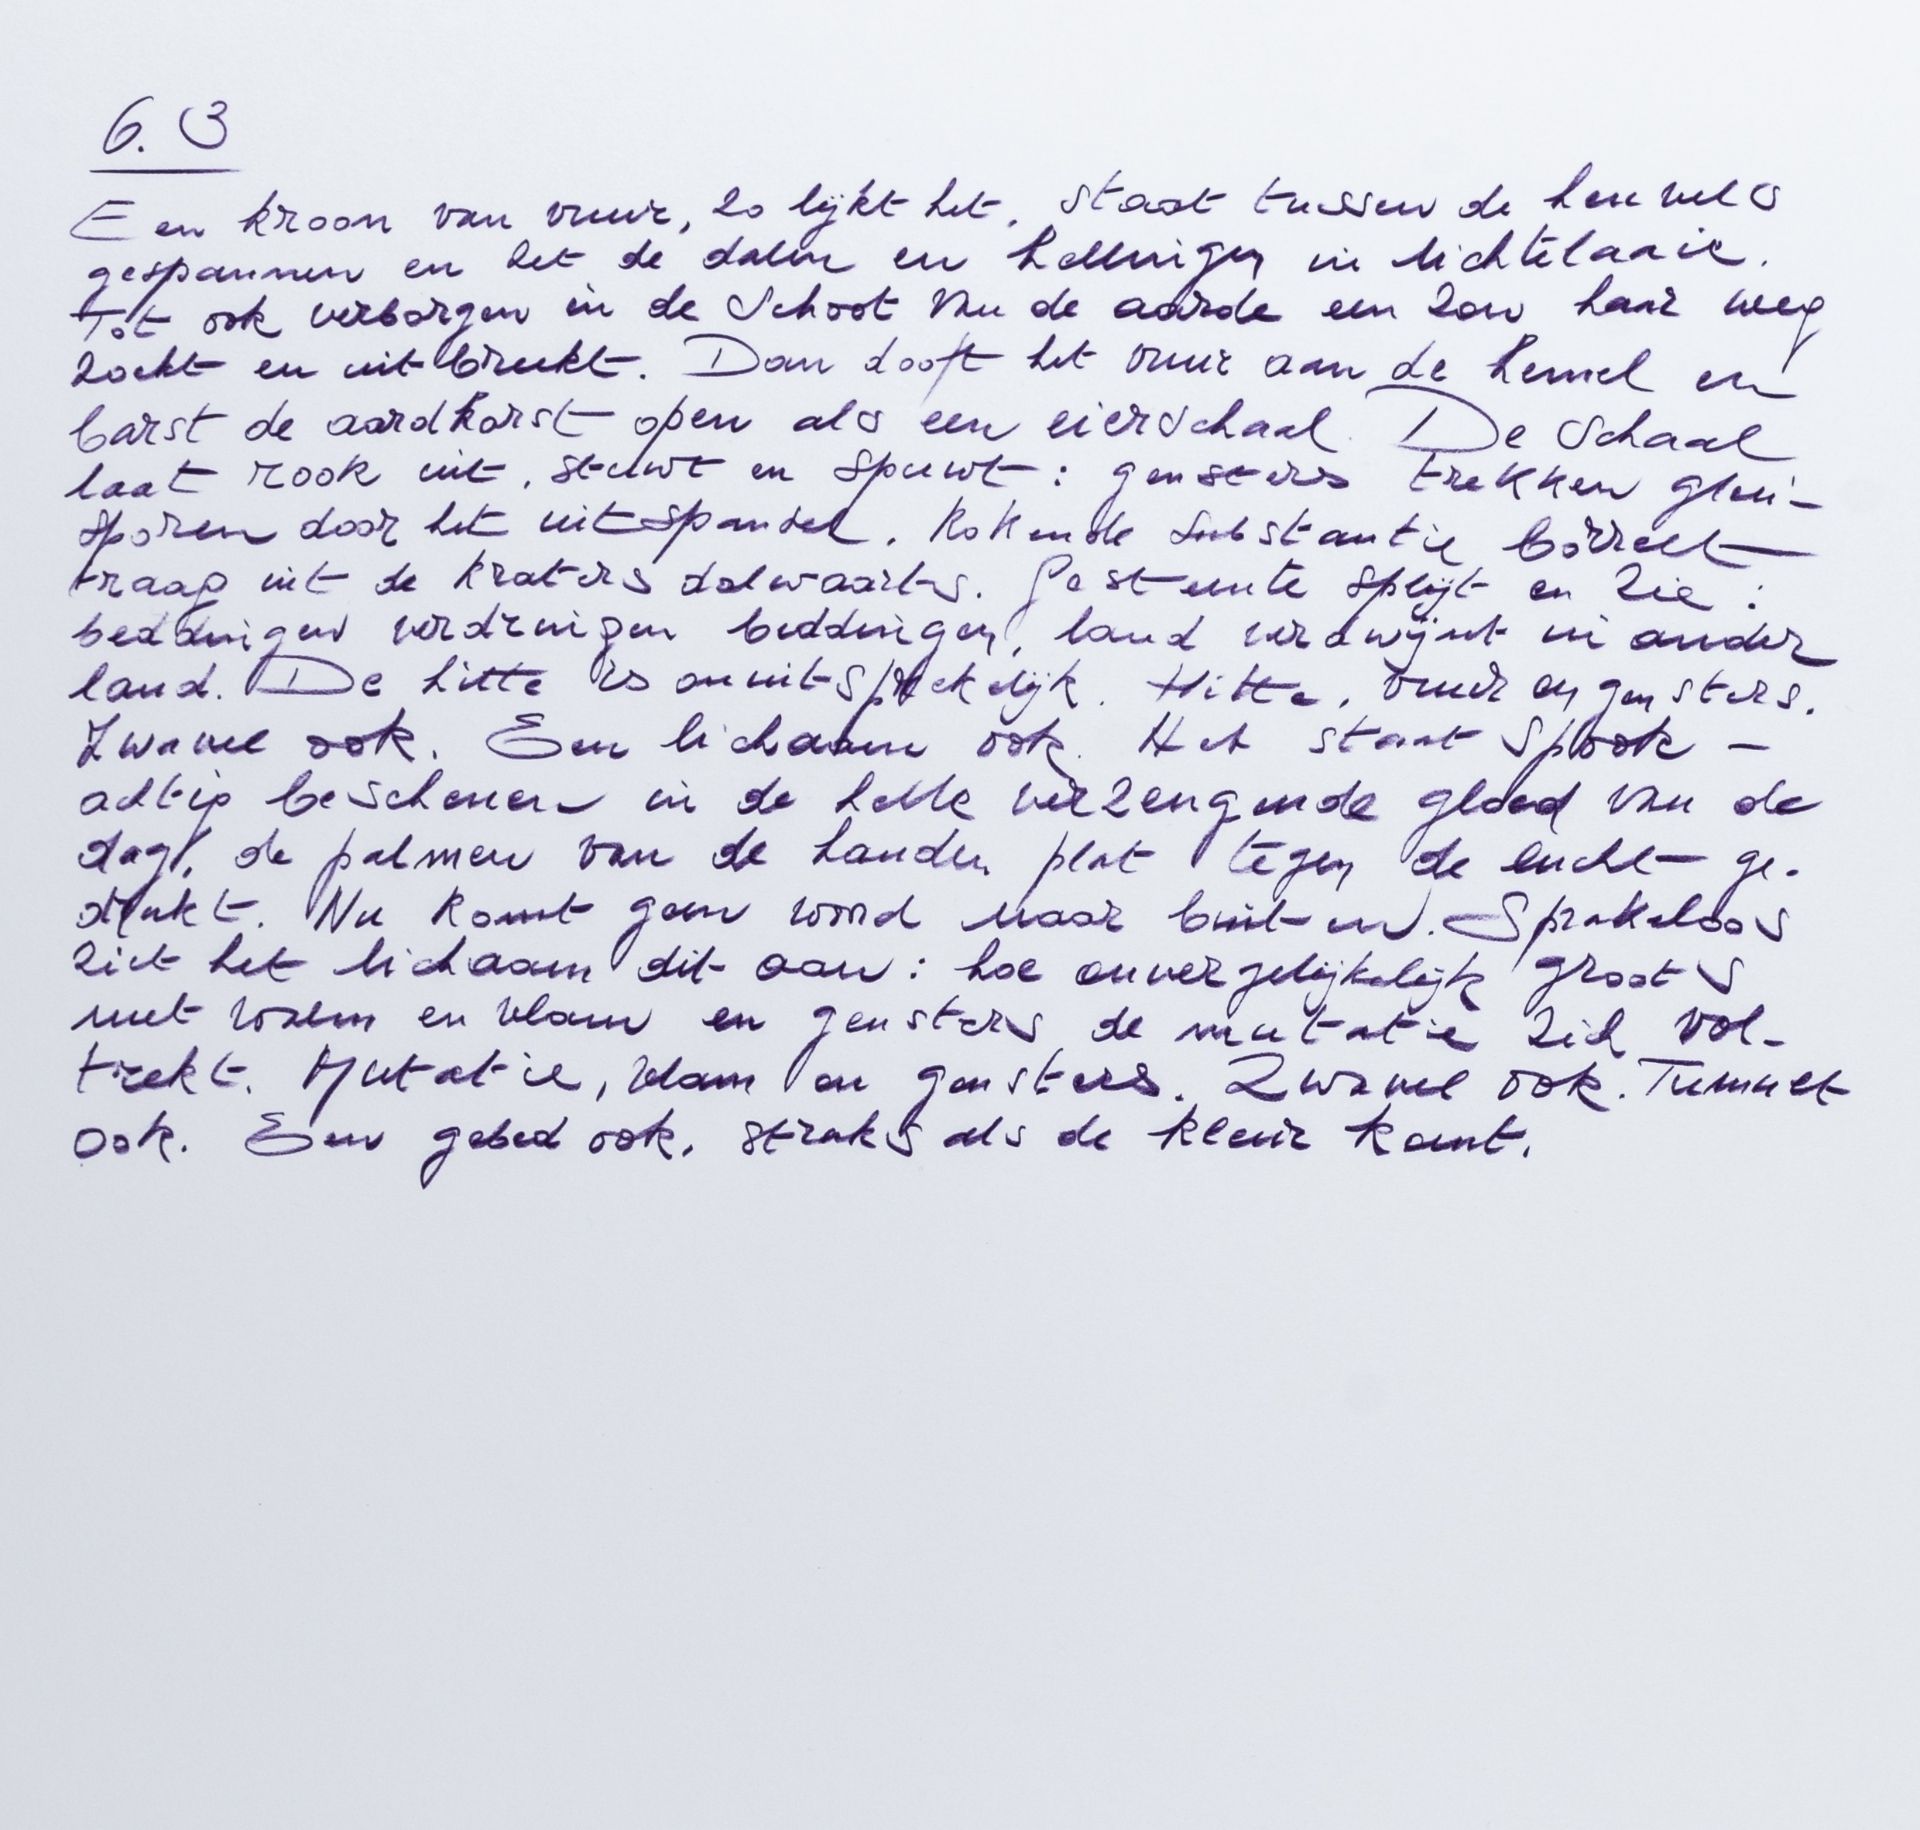 6.3
Een kroon van vuur, zo lijkt het, staat tussen de heuvels
gespannen en zet de dalen en hellingen in lichtelaaie.
Tot ook verborgen in de schoot van de aarde een zon haar weg
zoekt en uitbreekt. Dan dooft het vuur aan de hemel en
barst de aardkorst open als een eierschaal. De schaal
laat rook uit, stuwt en spuwt: gensters trekken gloei-
sporen door het uitspansel. Kokende substantie borrelt
traag uit de kraters dalwaarts. Gesteente splijt en zie:
beddingen verdringen beddingen, land verdwijnt in ander
land. De hitte is onuitsprekelijk. Hitte, vuur en gensters.
Zwavel ook. Een lichaam ook. Het staat spook-
achtig beschenen in de helle verzengende gloed van de
dag, de palmen van de handen plat tegen de lucht ge-
drukt. Nu komt geen woord naar buiten. Sprakeloos
ziet het lichaam dit aan: hoe onvergelijkelijk groots
met walm en vlam en gensters de mutatie zich vol-
trekt. Mutatie, vlam en gensters. Zwavel ook. Tumult
ook. Een gebed ook, straks als de kleur komt.